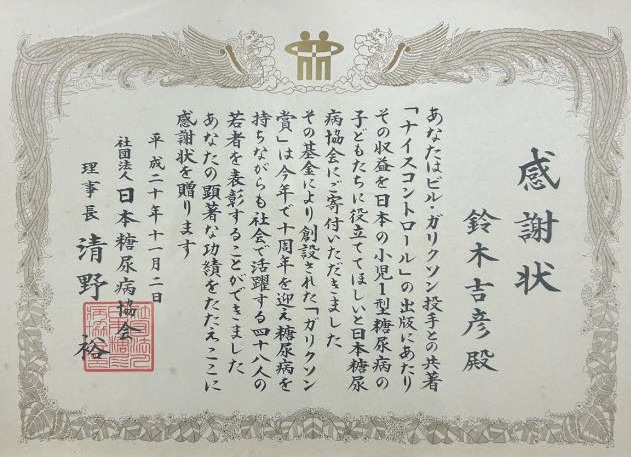 感謝状
鈴木吉彦殿
あなたはビル・ガリクソン投手との共著
「ナイスコントロール」の出版にあたり
その収益を日本の小児1型糖尿病の
子どもたちに役立ててほしいと日本糖尿
病協会にご寄付いただきました
その基金により創設された「ガリクソン
賞」は今年で十周年を迎え糖尿病を
持ちながらも社会で活躍する四十八人の
若者を表彰することができました
あなたの顕著な功績をたたえここに
感謝状を贈ります
平成二十年十一月二日
社団法人日本糖尿病協会
理事長 清野 裕